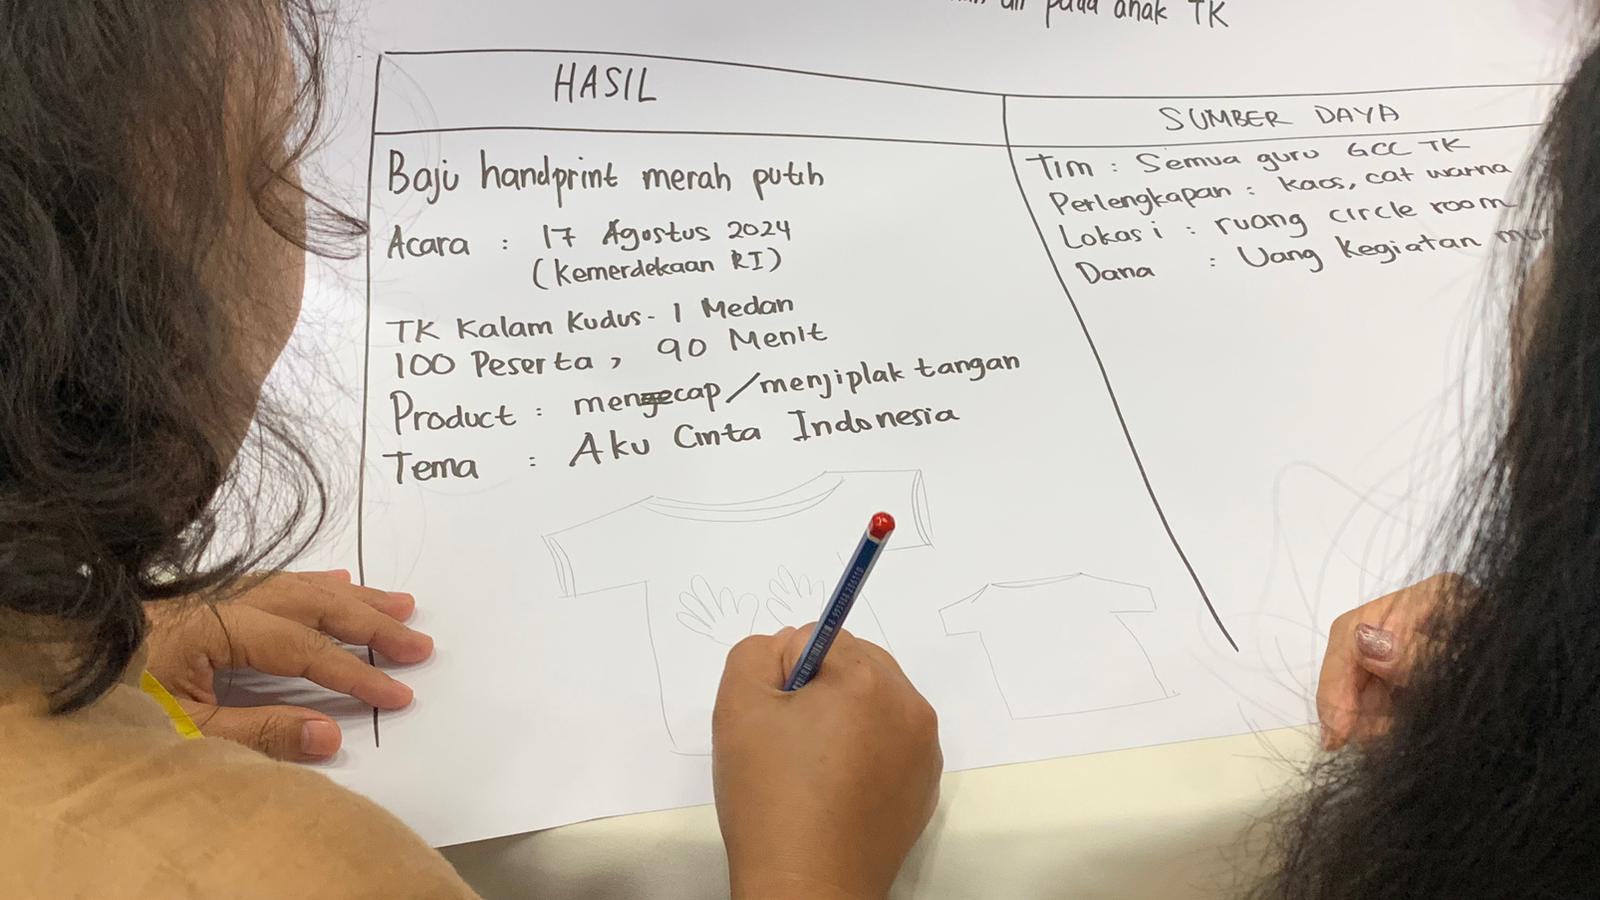 pada anak TK
HASIL
SUMBER DAYA
Baju handprint merah putih
Acara : 17 Agustus 2024
(Kemerdekaan RI)
TK Kalam Kudus - 1 Medan
100 Peserta, 90 Menit
Product : mengecap/menjiplak tangan
Tema : Aku Cinta Indonesia
Tim : Semua guru GCC TK
Perlengkapan : kaos, cat warna
Lokasi : ruang circle room
Dana : Uang Kegiatan